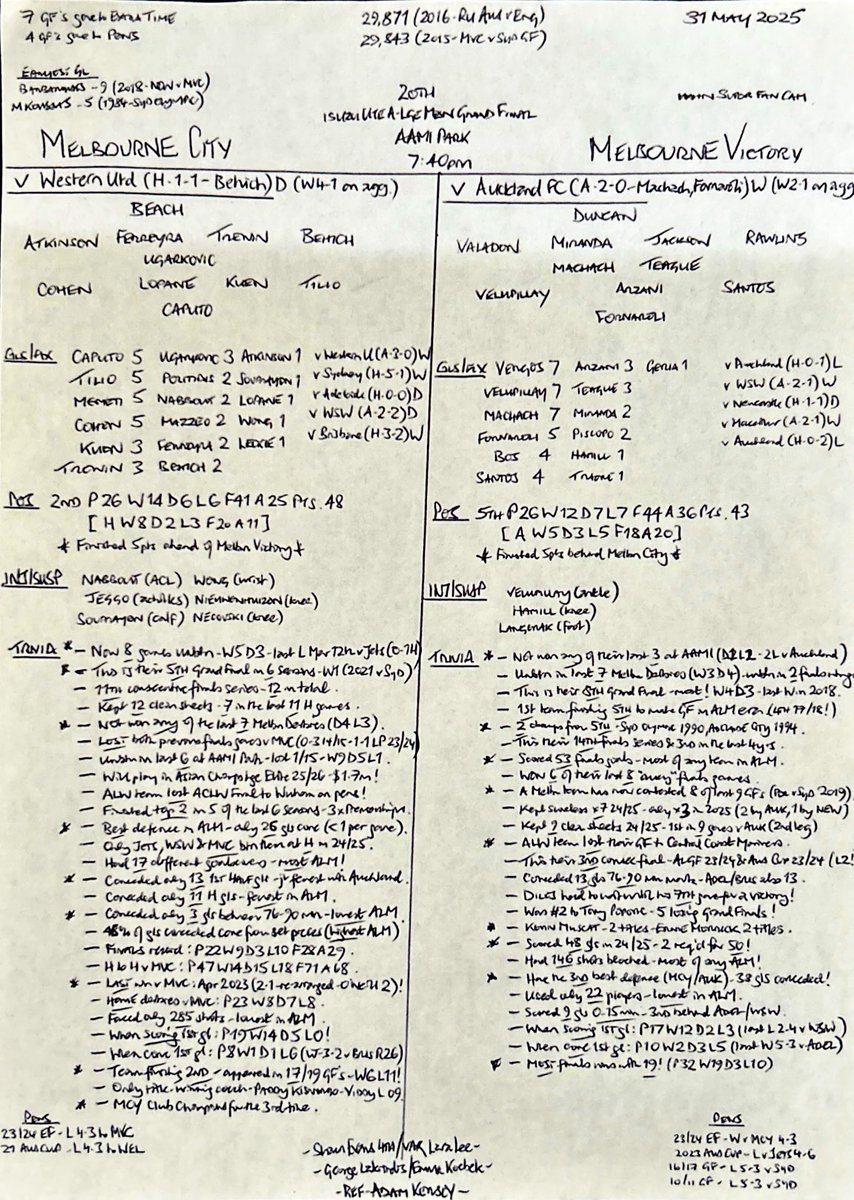 7 GF's gone to EXTRA TIME
4 GF's gone to PENS
29,871 (2016-RU Aus v Eng)
29,843 (2015-MVC v Syd GF)
31 MAY 2025
EARLIEST GL
BARBAROUSES - 9 (2018-NEW v MVC)
M KONSORTS - 5 (1984-SYD OLYMPIC)
20TH
ISUZU UTE A-LGE MEN GRAND FINAL
AAMI PARK
7:40pm
SUPER FAN CAM
MELBOURNE CITY
MELBOURNE VICTORY
v Western Utd (H-1-1-Behich) D (W4-1 on agg.)
BEACH
ATKINSON FERREYRA TRENIN BEHICH
UGARKOVIC
COHEN LOPANE KUEN TILIO
CAPUTO
v Auckland FC (A-2-0-Machach, Fornaroli) W (W2-1 on agg
DUNCAN
VALADON MIRANDA JACKSON RAWLINS
MACHACH TEAGUE
VELUPILLAY ARZANI SANTOS
FORNAROLI
GLS/FIX CAPUTO 5 UGARKOVIC 3 ATKINSON 1 v Western U (A-3-0) W
TILIO 5 POLITIDIS 2 SOUPRAYEN 1 v Sydney (H-5-1) W
MEMETI 5 NABBOUT 2 LOPANE 1 v Adelaide (H-0-0) D
COHEN 5 MAZZEO 2 WONG 1 v WSW (A-2-2) D
KUEN 3 FERREYRA 2 LECKIE 1 v Brisbane (H-3-2) W
TRENIN 3 BEHICH 2
GLS/FIX VERGOS 7 ARZANI 3 GERIA 1 v Auckland (H-0-1) L
VELUPILLAY 7 TEAGUE 3 v WSW (A-2-1) W
MACHACH 7 MIRANDA 2 v Newcastle (H-1-1) D
FORNAROLI 5 PISCOPO 2 v Macarthur (A-2-1) W
BOS 4 HAMILL 1 v Auckland (H-0-2) L
SANTOS 4 TRAORE 1
POS 2ND P26 W14 D6 L6 F41 A25 PTS. 48
[H W8 D2 L3 F20 A11]
* Finished 5pts ahead of Melbn Victory *
POS 5TH P26 W12 D7 L7 F44 A36 PTS. 43
[A W5 D3 L5 F18 A20]
* Finished 5pts behind Melbn City *
INJ/SUSP NABBOUT (ACL) WONG (wrist)
JEGGO (achilles) NIEUWENHUIZEN (knee)
SOUPRAYEN (calf) NECOVSKI (knee)
INJ/SUSP VELUPILLAY (ankle)
HAMILL (knee)
LANGERAK (foot)
TRIVIA * - Now 8 games unbtn - W5 D3 - last L Mar 12th v Jets (0-1 H)
* - This is their 5TH Grand Final in 6 Seasons - W1 (2021 v Syd)
- 11TH consecutive finals series - 12 in total.
- Kept 12 clean sheets - 7 in the last 11 H games.
* - Not won any of the last 7 Melbn Derbies (D4 L3).
- Lost both previous finals games v MVC (0-3 14/15-1-1 LP 23/24)
- Unbtn in last 6 at AAMI Park - lost 1/15 - W9 D5 L1.
- Will play in Asian Champs Lge Elite 25/26 - $1.7m!
- ALW team lost ACLW Final to Wuhan on pens!
- Finished top 2 in 5 of the last 6 seasons - 3x Premierships.
* - Best defence in ALM - only 25 gls conc (<1 per game).
- Only JETS, WSW & MVC btn them at H in 24/25.
- Had 17 different goalscorers - most ALM!
* - Conceded only 13 1st Half gls - jt fewest with Auckland.
- Conceded only 11 H gls - fewest in ALM.
* - Conceded only 3 gls between 76-90 min - lowest ALM
- 48% of gls conceded come from set pieces (highest ALM)
- Finals record: P22 W9 D3 L10 F28 A29.
- H to H v MVC: P47 W14 D15 L18 F71 A68.
* - Last win v MVC: Apr 2023 (2-1-re-arranged - O'Neill 2)!
- Home derbies v MVC: P23 W8 D7 L8.
- Faced only 285 shots - lowest in ALM.
- When scoring 1st gl: P19 W14 D5 L0!
- When conc 1st gl: P8 W1 D1 L6 (W-3-2 v Bris R26)
* - Team finishing 2ND - appeared in 17/19 GF's - W6 L11!
- Only title-winning coach - PADDY KISNORBO - VIDDY L 09.
* - MCY Club Champions for the 3rd time.
TRIVIA * - Not won any of their last 3 at AAMI (D1 L2 - 2L v Auckland)
- Unbtn in last 7 Melbn Derbies (W3 D4) - unbtn in 2 finals mtngs
- This is their 8TH Grand Final - most! W4 D3 - last W in 2018.
- 1st team finishing 5TH to make GF in ALM era (4TH 17/18!)
* - 2 champs from 5TH - Syd Olympic 1990, Adelaide City 1994.
- This their 14TH finals series & 3rd in the last 4 yrs.
* - Scored 53 finals goals - most of any team in ALM.
- Won 6 of their last 8 "away" finals games.
* - A Melbn team has now contested 8 of last 9 GFs (Per v Syd 2019)
- Kept scoreless x7 24/25 - only x3 in 2025 (2 by AUK, 1 by NEW)
- Kept 9 clean sheets 24/25 - 1st in 9 games v AUK (2nd leg)
* - ALW team lost their GF to Central Coast Mariners.
- This their 3rd consec final - ALGF 23/24 & Aus Cup 23/24 (L2!
- Conceded 13 gls 76-90 min mark - ADEL/BRIS also 13.
- Diles had to wait until his 7TH game for a victory!
- Was #2 to Tony Popovic - 5 losing Grand Finals!
* - Kevin Muscat - 2 titles - Ernie Merrick 2 titles.
* - Scored 48 gls in 24/25 - 2 req'd for 50!
- Had 146 shots blocked - Most of any ALM!
* - Have the 3rd best defence (MCY/AUK) - 38 gls conceded!
- Used only 22 players - lowest in ALM.
- Scored 9 gls 0-15 min - 3rd behind ADEL/WSW.
- When scoring 1st gl: P17 W12 D2 L3 (last L 2-4 v WSW)
- When conc 1st gl: P10 W2 D3 L5 (last W 5-3 v ADEL)
* - Most finals wins with 19! (P32 W19 D3 L10)
PENS
23/24 EF - L 4-3 to MVC
21 AUS CUP - L 4-3 to WEL
- Shaun Evans 4TH / VAR Lara Lee -
- George Lakrindis / Emma Kocbek -
- REF - ADAM KERSEY -
PENS
23/24 EF - W v MCY 4-3
2023 AUS CUP - L v JETS 4-6
16/17 GF - L 5-3 v SYD
10/11 EF - L 5-3 v SYD